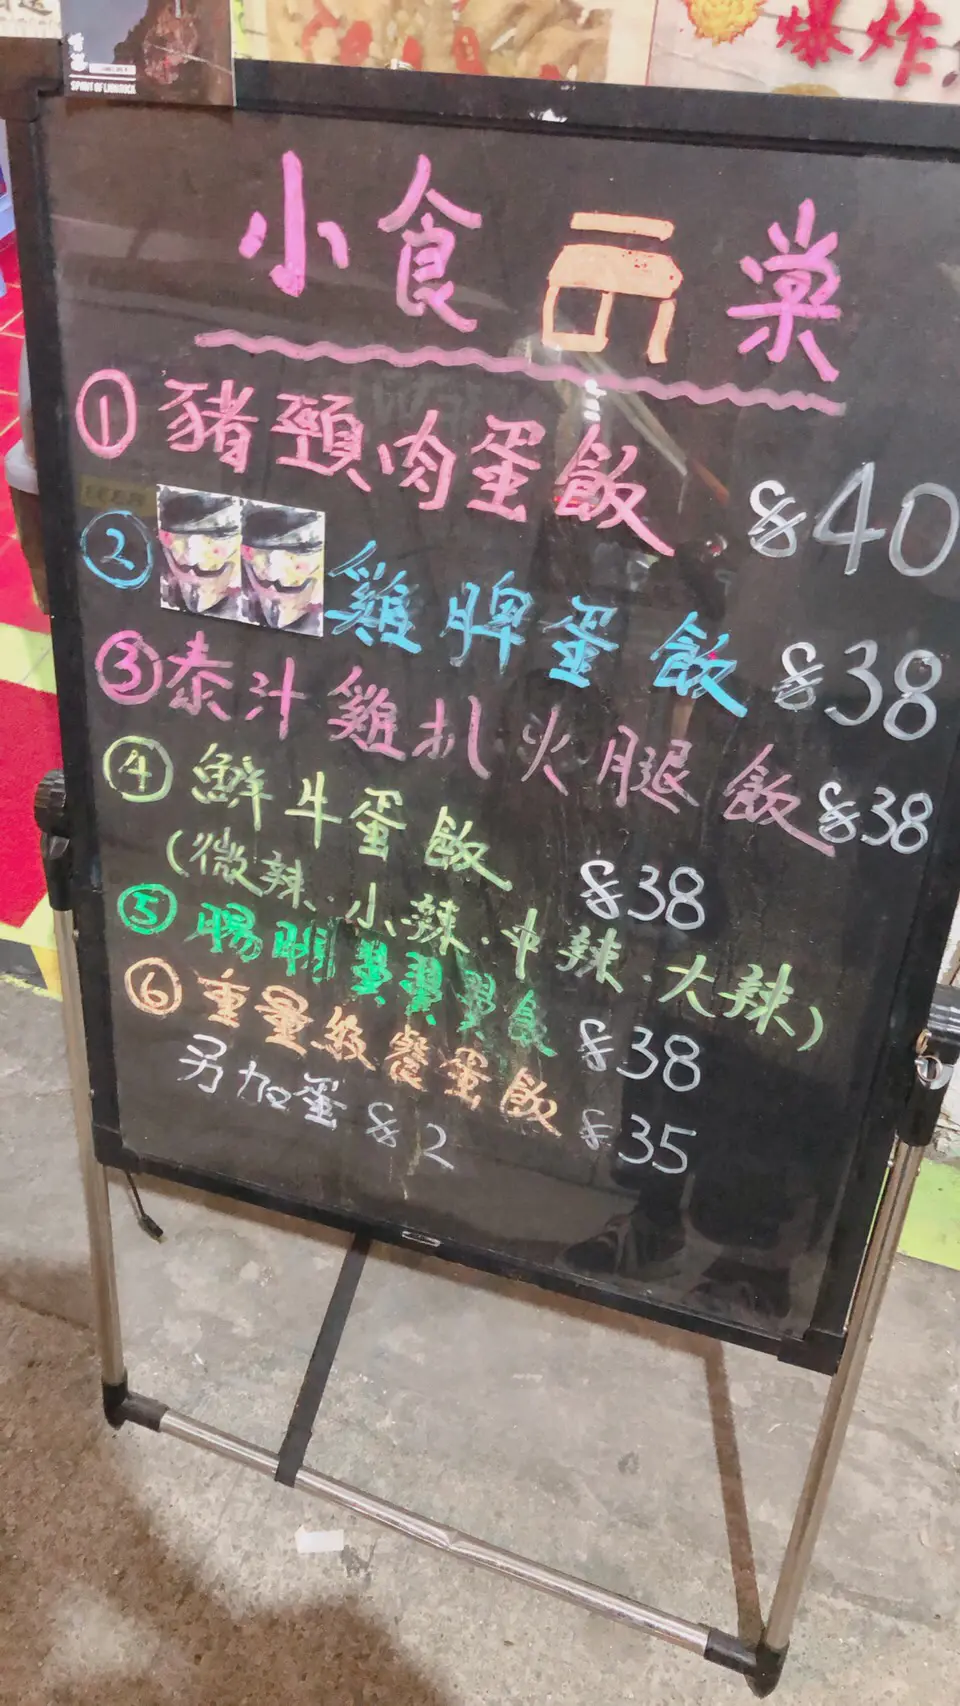 爆炸
SPIRIT OF LIONROCK
小食店菜
① 豬頸肉蛋飯 $40
② 雞脾蛋飯 $38
③ 泰汁雞扒火腿飯 $38
④ 鮮牛蛋飯 $38
(微辣.小辣.中辣.大辣)
⑤ 腸 $38
⑥ 重量級餐蛋飯 $35
另加蛋 $2